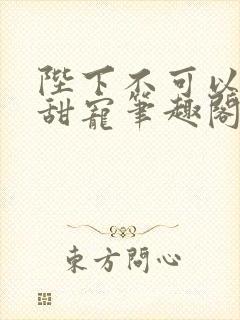 陛下不可以
甜寵筆趣閣
東方問心